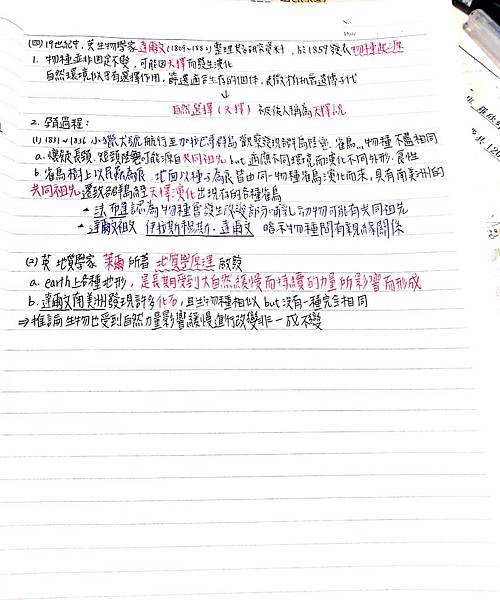 (四) 19世紀中,英生物學家達爾文(1809~1882)整理其研究資料,於1859發表物種起源
1. 物種並非固定不變,可能因天擇而發生演化
自然環境似乎有選擇作用,篩選適合生存的個體,
↓
自然選擇(天擇) 被後人稱為天擇說
2. 領過程:
(1) 1831~1836 小獵犬號航行至加拉巴哥群島觀察發現群島陸龜、雀鳥…物種不盡相同
a. 可能源自共同祖先 but 適應不同環境而演化不同外形、食性
b. 雀鳥樹上以昆蟲為食、地面以種子為食 皆由同一物種雀鳥演化而來,具有南美洲的
共同祖先 群島經天擇演化出現存的各種雀鳥
- 法 布達認為物種會發生改變部分哺乳動物可能有共同祖先
- 達爾文祖父 伊拉斯穆斯·達爾文 暗示物種間有親緣關係
(2) 英 地質學家 萊爾 所著 地質學原理 啟發
a. earth上各種地形,是長期受到大自然緩慢而持續的力量所影響而形成
b. 達爾文南美洲發現許多化石,且生物種相似 but 沒有一種完全相同
⇒ 推論生物也受到自然力量影響緩慢進行改變非一成不變